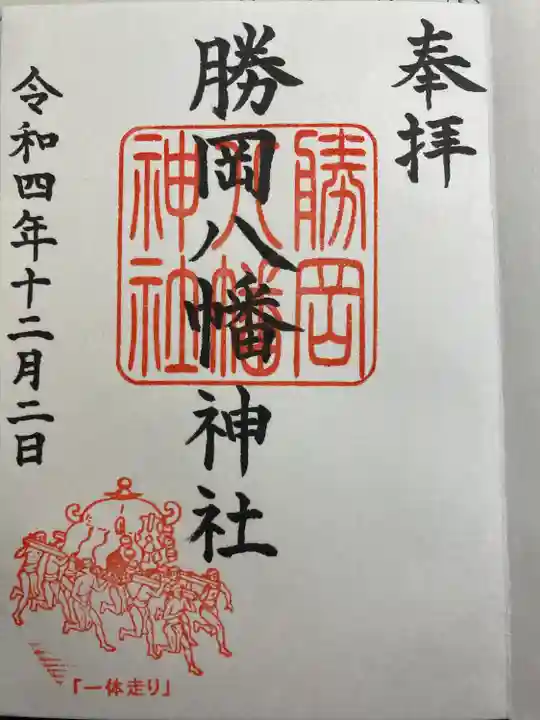 奉拝
勝岡八幡神社
勝岡八幡神社
令和四年十二月二日
「一体走り」